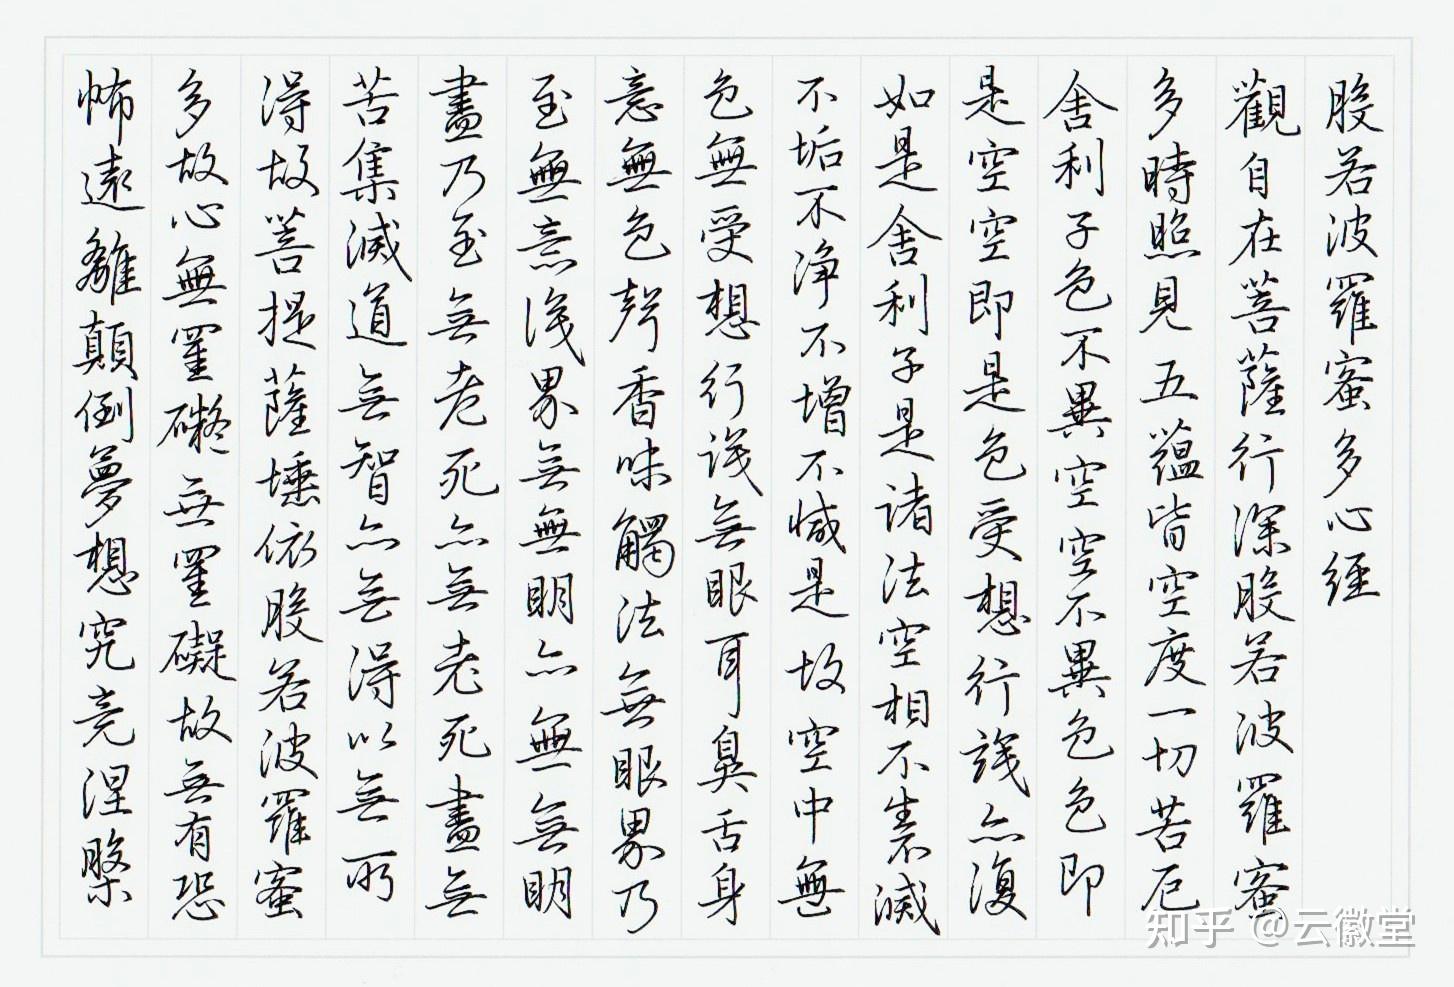 般若波羅蜜多心經
觀自在菩薩行深般若波羅蜜
多時照見五蘊皆空度一切苦厄
舍利子色不異空空不異色色即
是空空即是色受想行識亦復
如是舍利子是諸法空相不生不滅
不垢不淨不增不減是故空中無
色無受想行識無眼耳鼻舌身
意無色聲香味觸法無眼界乃
至無意識界無無明亦無無明
盡乃至無老死亦無老死盡無
苦集滅道無智亦無得以無所
得故菩提薩埵依般若波羅蜜
多故心無罣礙無罣礙故無有恐
怖遠離顛倒夢想究竟涅槃
知乎 @云徽堂